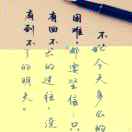 不管今天多么的
困难，都要坚信：只
有回不去的过往，没
有到不了的明天。